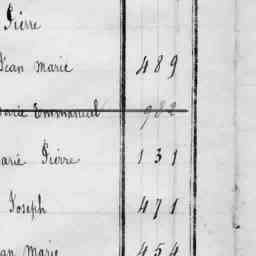 Pierre
Jean Marie 489
Marie Emmanuel 982
Marie Pierre 131
Joseph 471
Jean Marie 454